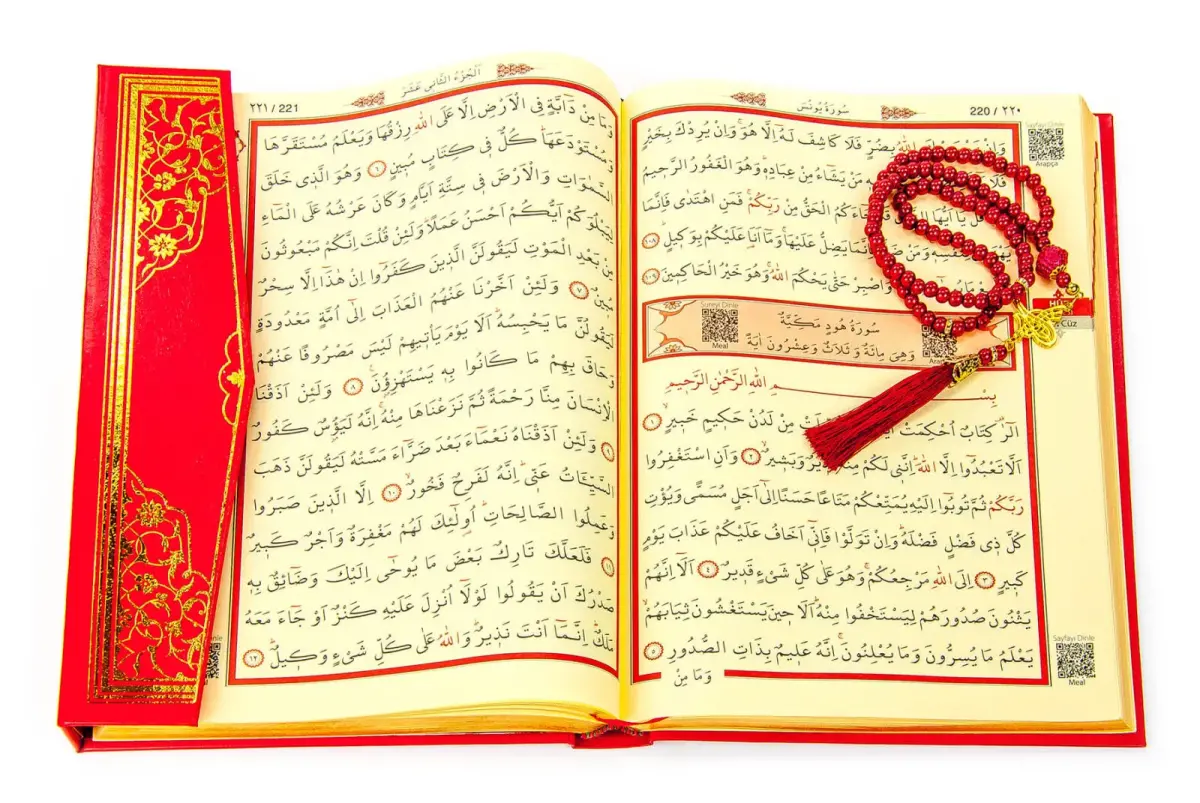 سُورَةُ يُونُسَ
220 / ٢٢٠
Sayfayı Dinle
Arapça
اللّٰهُ بِضُرٍّ فَلَا كَاشِفَ لَهُٓ اِلَّا هُوَۚ وَاِنْ يُرِدْكَ بِخَيْرٍ
فَلَا مَنْ يَشَٓاءُ مِنْ عِبَادِه۪ۜ وَهُوَ الْغَفُورُ الرَّح۪يمُ
قُلْ يَٓا اَيُّهَا جَٓاءَكُمُ الْحَقُّ مِنْ رَبِّكُمْۚ فَمَنِ اهْتَدٰى فَاِنَّمَا
وَمَنْ يَضِلُّ عَلَيْهَاۚ وَمَٓا اَنَا۬ عَلَيْكُمْ بِوَك۪يلٍۜ ١٠٨
وَاصْبِرْ حَتّٰى يَحْكُمَ اللّٰهُۚ وَهُوَ خَيْرُ الْحَاكِم۪ينَ ١٠٩
Cüz
Sureyi Dinle
Meal
سُورَةُ هُودٍ مَكِّيَّةٌ
وَهِىَ مِائَةٌ وَ ثَلَاثٌ وَعِشْرُونَ اٰيَةً
بِسْمِ اللّٰهِ الرَّحْمٰنِ الرَّح۪يمِ
الٓرٰ۠ كِتَابٌ اُحْكِمَتْ مِنْ لَدُنْ حَك۪يمٍ خَب۪يرٍۙ ١
اَلَّا تَعْبُدُٓوا اِلَّا اللّٰهَۜ اِنَّن۪ي لَكُمْ مِنْهُ وَبَش۪يرٌۙ ٢ وَاَنِ اسْتَغْفِرُوا
رَبَّكُمْ ثُمَّ تُوبُٓوا اِلَيْهِ يُمَتِّعْكُمْ مَتَاعًا حَسَنًا اِلٰٓى اَجَلٍ مُسَمًّى وَيُؤْتِ
كُلَّ ذ۪ي فَضْلٍ فَضْلَهُۜ وَاِنْ تَوَلَّوْا فَاِنّ۪ٓي اَخَافُ عَلَيْكُمْ عَذَابَ يَوْمٍ
كَب۪يرٍ ٣ اِلَى اللّٰهِ مَرْجِعُكُمْۚ وَهُوَ عَلٰى كُلِّ شَيْءٍ قَد۪يرٌ ٤ اَلَٓا اِنَّهُمْ
يَثْنُونَ صُدُورَهُمْ لِيَسْتَخْفُوا مِنْهُۜ اَلَا ح۪ينَ يَسْتَغْشُونَ ثِيَابَهُمْۙ
يَعْلَمُ مَا يُسِرُّونَ وَمَا يُعْلِنُونَۚ اِنَّهُ عَل۪يمٌ بِذَاتِ الصُّدُورِ ٥
وَمَا مِنْ
Sayfayı Dinle
Meal
اَلْجُزْءُ الثَّانِى عَشَرَ
٢٢١ / 221
وَمَا مِنْ دَٓابَّةٍ فِي الْاَرْضِ اِلَّا عَلَى اللّٰهِ رِزْقُهَا وَيَعْلَمُ مُسْتَقَرَّهَا
وَمُسْتَوْدَعَهَاۜ كُلٌّ ف۪ي كِتَابٍ مُب۪ينٍ ٦ وَهُوَ الَّذ۪ي خَلَقَ
السَّمٰوَاتِ وَالْاَرْضَ ف۪ي سِتَّةِ اَيَّامٍ وَكَانَ عَرْشُهُ عَلَى الْمَٓاءِ
لِيَبْلُوَكُمْ اَيُّكُمْ اَحْسَنُ عَمَلًاۜ وَلَئِنْ قُلْتَ اِنَّكُمْ مَبْعُوثُونَ
مِنْ بَعْدِ الْمَوْتِ لَيَقُولَنَّ الَّذ۪ينَ كَفَرُٓوا اِنْ هٰذَٓا اِلَّا سِحْرٌ
مُب۪ينٌ ٧ وَلَئِنْ اَخَّرْنَا عَنْهُمُ الْعَذَابَ اِلٰٓى اُمَّةٍ مَعْدُودَةٍ
لَيَقُولُنَّ مَا يَحْبِسُهُۜ اَلَا يَوْمَ يَأْت۪يهِمْ لَيْسَ مَصْرُوفًا عَنْهُمْ
وَحَاقَ بِهِمْ مَا كَانُوا بِه۪ يَسْتَهْزِؤُ۫نَ۟ ٨ وَلَئِنْ اَذَقْنَا
الْاِنْسَانَ مِنَّا رَحْمَةً ثُمَّ نَزَعْنَاهَا مِنْهُۚ اِنَّهُ لَيَؤُ۫سٌ كَفُورٌ
٩ وَلَئِنْ اَذَقْنَاهُ نَعْمَٓاءَ بَعْدَ ضَرَّٓاءَ مَسَّتْهُ لَيَقُولَنَّ ذَهَبَ
السَّيِّـَٔاتُ عَنّ۪يۜ اِنَّهُ لَفَرِحٌ فَخُورٌۙ ١٠ اِلَّا الَّذ۪ينَ صَبَرُوا
وَعَمِلُوا الصَّالِحَاتِۜ اُو۬لٰٓئِكَ لَهُمْ مَغْفِرَةٌ وَاَجْرٌ كَب۪يرٌ
١١ فَلَعَلَّكَ تَارِكٌ بَعْضَ مَا يُوحٰٓى اِلَيْكَ وَضَٓائِقٌ بِه۪
صَدْرُكَ اَنْ يَقُولُوا لَوْلَٓا اُنْزِلَ عَلَيْهِ كَنْزٌ اَوْ جَٓاءَ مَعَهُ
مَلَكٌۜ اِنَّمَٓا اَنْتَ نَذ۪يرٌۜ وَاللّٰهُ عَلٰى كُلِّ شَيْءٍ وَك۪يلٌۜ ١٢